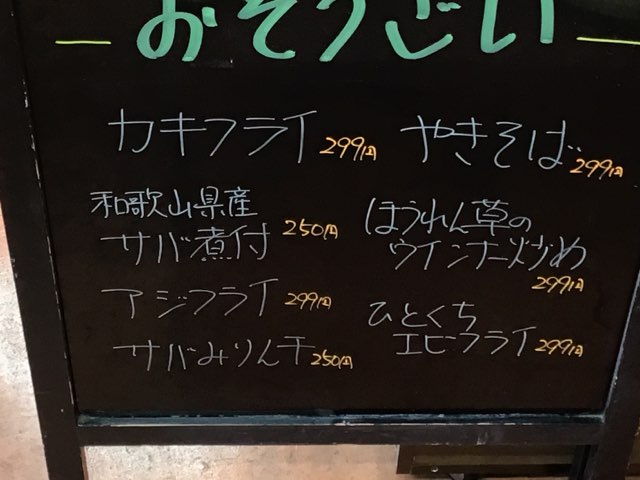 おそうざい
カキフライ 299円
和歌山県産
サバ煮付 250円
アジフライ 299円
サバみりん干 250円
やきそば 299円
ほうれん草の
ウインナー炒め
299円
ひとくち
エビフライ 299円